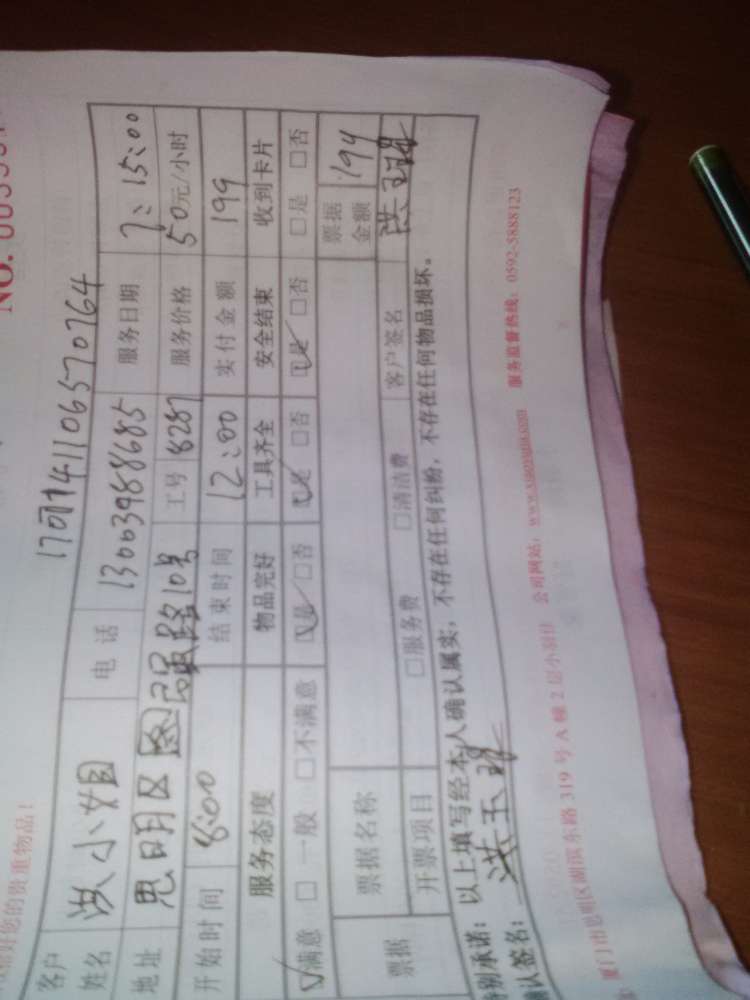 保好您的贵重物品！
NO.
170741106570764
客户姓名 洪小姐 电话 13003988685 服务日期 7:15:00
地址 思明区图强路10号 工号 8287 服务价格 50元/小时
开始时间 8:00 结束时间 12:00 实付金额 199
服务态度 物品完好 工具齐全 安全结束 收到卡片
☑满意 □一般 □不满意 ☑是 □否 ☑是 □否 ☑是 □否 □是 □否
票据 票据名称 票据金额 199
开票项目 □服务费 □清洁费 客户签名
特别承诺：以上填写经本人确认属实，不存在任何纠纷，不存在任何物品损坏。
确认签名：洪玉
厦门市思明区湖滨东路 319 号 A 幢 2 层小羽佳 公司网站：www.xiaoyujia.com 服务监督热线：0592-5888123